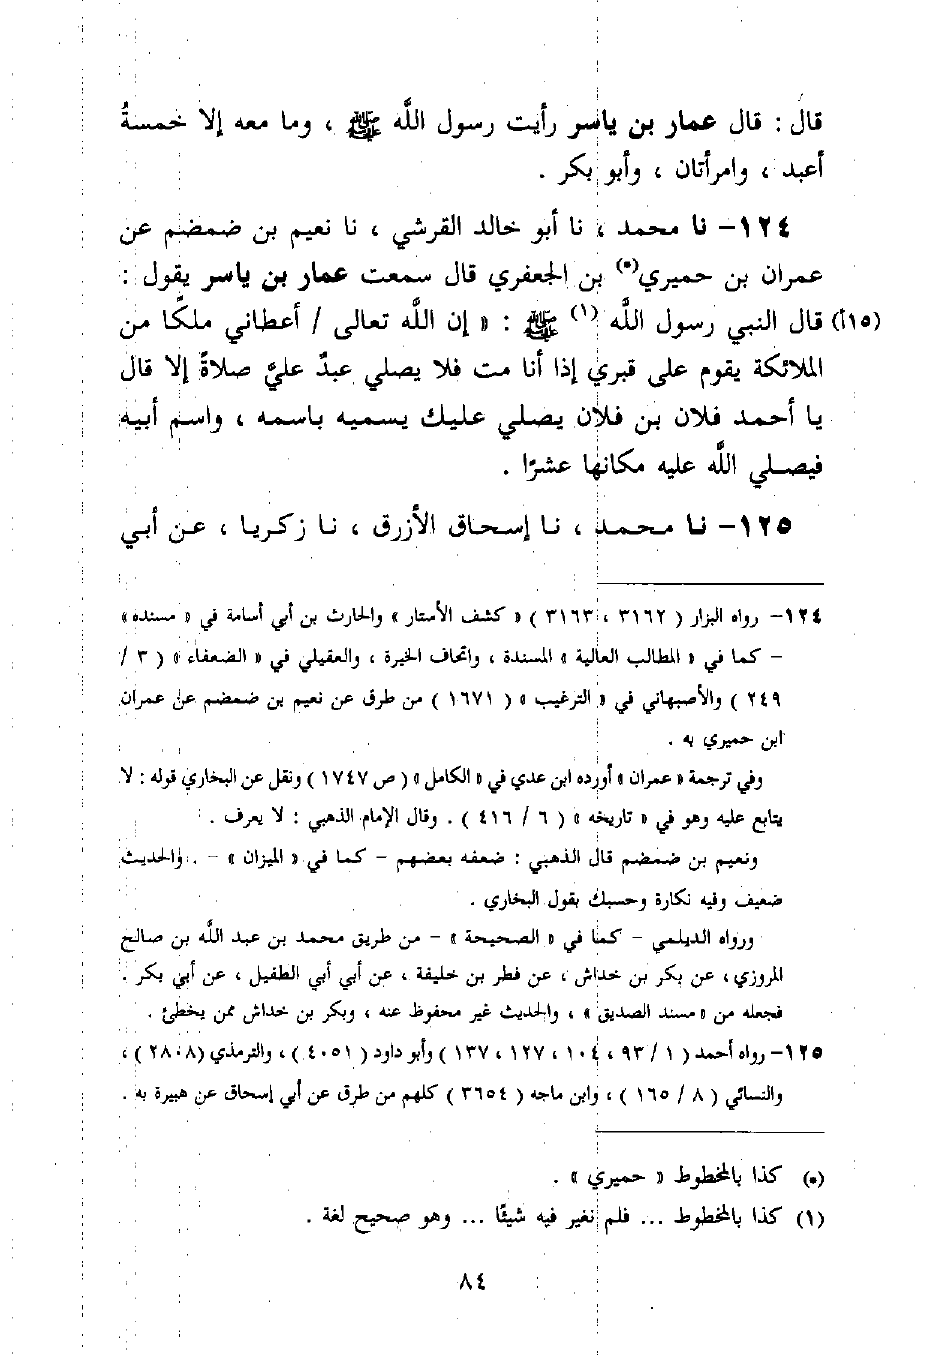 قال : قال عمار بن ياسر رأيت رسول الله ﷺ ، وما معه إلا خمسةُ
أعبد ، وامرأتان ، وأبو بكر .
١٢٤- نا محمد ، نا أبو خالد القرشي ، نا نعيم بن ضمضم عن
عمران بن حميري(*) بن الجعفري قال سمعت عمار بن ياسر يقول :
(١٥أ) قال النبي رسول الله (١) ﷺ : « إن الله تعالى / أعطاني ملكًا من
الملائكة يقوم على قبري إذا أنا مت فلا يصلي عبدٌ عليَّ صلاةً إلا قال
يا أحمد فلان بن فلان يصلي عليك يسميه باسمه ، واسم أبيه
فيصلي الله عليه مكانها عشرًا .
١٢٥- نا محمد ، نا إسحاق الأزرق ، نا زكريا ، عن أبي
١٢٤- رواه البزار ( ٣١٦٢ ، ٣١٦٣ ) « كشف الأستار » والحارث بن أبي أسامة في « مسنده »
- كما في « المطالب العالية » المسندة ، واتحاف الخيرة ، والعقيلي في « الضعفاء » ( ٣ /
٢٤٩ ) والأصبهاني في « الترغيب » ( ١٦٧١ ) من طرق عن نعيم بن ضمضم عن عمران
ابن حميري به .
وفي ترجمة « عمران » أورده ابن عدي في « الكامل » ( ص ١٧٤٧ ) ونقل عن البخاري قوله : لا
يتابع عليه وهو في « تاريخه » ( ٦ / ٤١٦ ) . وقال الإمام الذهبي : لا يعرف .
ونعيم بن ضمضم قال الذهبي : ضعفه بعضهم - كما في « الميزان » - . والحديث
ضعيف وفيه نكارة وحسبك بقول البخاري .
ورواه الديلمي - كما في « الصحيحة » - من طريق محمد بن عبد الله بن صالح
المروزي ، عن بكر بن خداش ، عن فطر بن خليفة ، عن أبي أبي الطفيل ، عن أبي بكر .
فجعله من « مسند الصديق » ، والحديث غير محفوظ عنه ، وبكر بن خداش ممن يخطئ .
١٢٥- رواه أحمد ( ١ / ٩٣ ، ١٠٤ ، ١٢٧ ، ١٣٧ ) وأبو داود ( ٤٠٥١ ) ، والترمذي (٢٨٠٨ ) ،
والنسائي ( ٨ / ١٦٥ ) ، وابن ماجه ( ٣٦٥٤ ) كلهم من طرق عن أبي إسحاق عن هبيرة به .
(*) كذا بالمخطوط « حميري » .
(١) كذا بالمخطوط ... فلم نغير فيه شيئًا ... وهو صحيح لغة .
٨٤